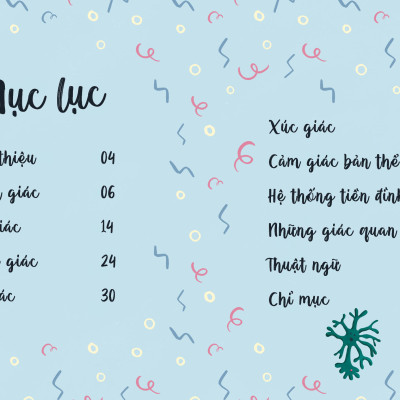 lục
thiệu 04
giác 06
14
giác 24
30
Xúc giác
Cảm giác bản thể
Hệ thống tiền đình
Những giác quan
Thuật ngữ
Chỉ mục